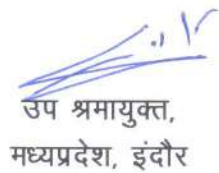 उप श्रमायुक्त,
मध्यप्रदेश, इंदौर